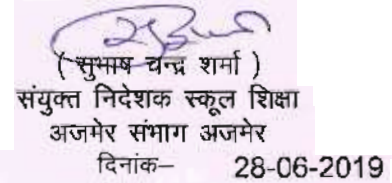 ( सुभाष चन्द्र शर्मा )
संयुक्त निदेशक स्कूल शिक्षा
अजमेर संभाग अजमेर
दिनांक– 28-06-2019